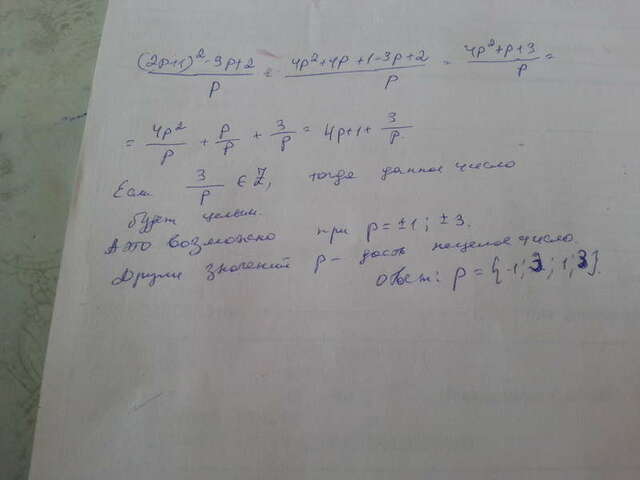 (2p+1)²-3p+2/p = 4p²+4p+1-3p+2/p = 4p²+p+3/p =
= 4p²/p + p/p + 3/p = 4p+1+ 3/p.
Если 3/p ∈ Z, тогда данное число
будет целым.
А это возможно при p=±1; ±3.
Други значений p - дасть нецелое число.
Ответ: p={-1; 3; 1; 3}.